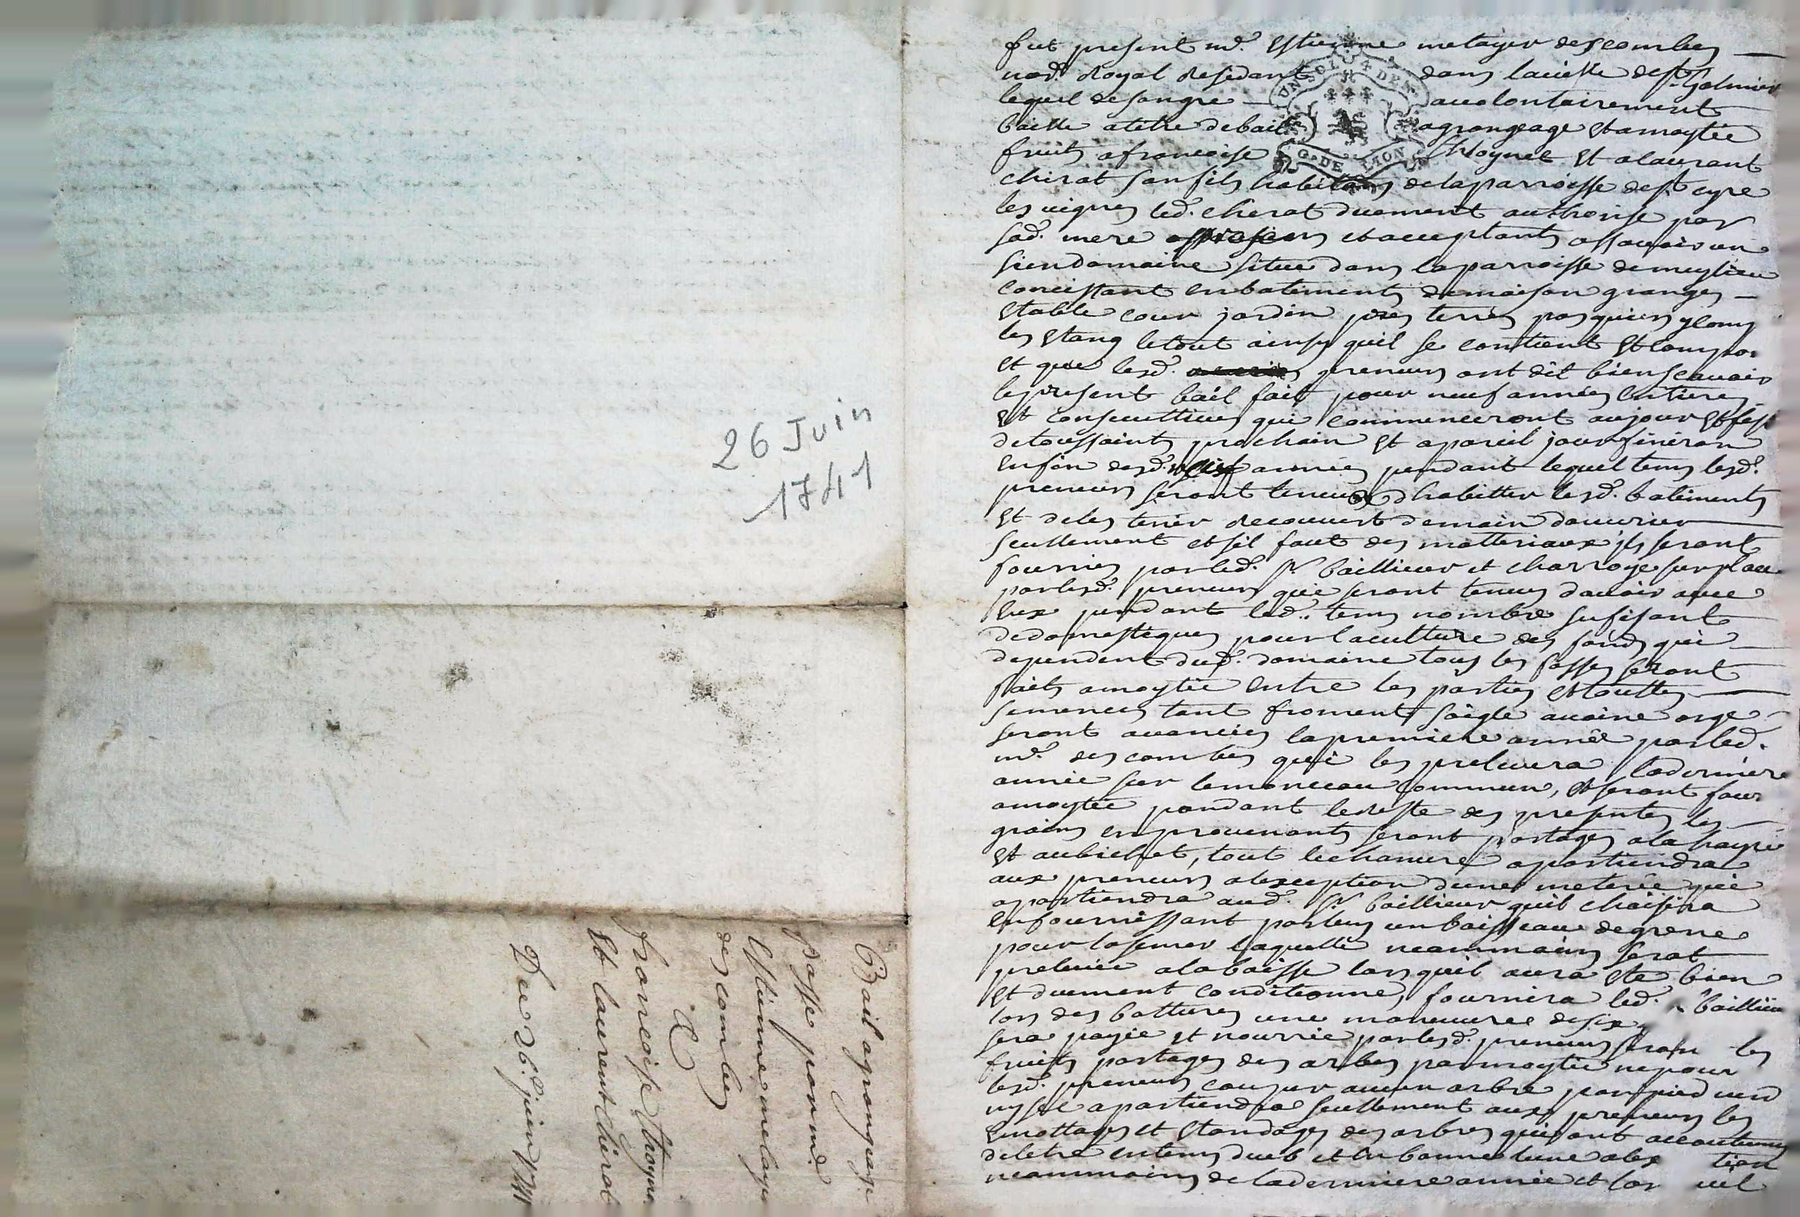 26 Juin
1741
Bail a grangeage
passe par md.
Estienne metayer
des combes
a
francoise thoynet
Et laurent chirat
Du 26e. juin 1741
fut present md. Estienne metayer des combes
nod. Royal residant dans la ville de st. Galmier
lequel de son gre a volontairement
baillé a titre de bail a grangeage et a moytié
fruits a francoise thoynet Et a laurant
chirat son fils habitans de la parroisse de st. cyre
les vignes led. chirat duement authorisé par
sad. mere et acceptants assavoir un
sien domaine situé dans la parroisse de meylieu
concistant en batiments de maison granges
Etable cour jardin prés terres pasquiers
les Etang le tout ainsy quil se contient Et comporte
Et que lesd. preneurs ont dit bien scavoir
le present bail fait pour neuf années entieres
Et consecutives qui commenceront au jour Et feste
de toussaints prochain Et a pareil jour finiront
enfin desd. neuf années pendant lequel tems lesd.
preneurs seront tenus dhabitter lesd. batiments
Et de les tenir recouvert de main douvrier
seullement et sil faut des matteriaux ils seront
fournis par led. sr. baillieur et charroyé sur place
par lesd. preneurs qui seront tenus davoir avec
Eux pendant led. tems nombre sufisant
de domestiques pour la culture des fonds qui
dependent dud. domaine tous les fossés seront
faits a moytié entre les parties et touttes
semences tant froment saigle avoine orge
seront avancées la premiere année par led.
md. des combes qui les prelevera la derniere
année sur le monceau commun, et seront four
a moytié pandant le reste des presentes les
grains en provenants seront partagés a la
Et au bichet, tout le chanvre apartiendra
aux preneurs a lexception dune meterée qui
apartiendra aud. sr. baillieur quil choisira
en fournissant par luy un boisseau de grene
pour la semer laquelle neammoins serat
prelevée a la baisse lors quil aura Eté bien
Et duement conditionné, fournira led. baillieur
lors des battures une maneuvre de six
sera payée et nourrie par lesd. preneurs seront les
fruits partagés des arbres par moytié ne pour
lesd. preneurs couper aucun arbre par pied verd
ny sec apartiendra seullement aux preneurs les
Emottages et Etandages des arbres qui sont accoutumés
de letre en tems dueb et en bonne lune a lex tion
neammoins de la derniere année et lor uil